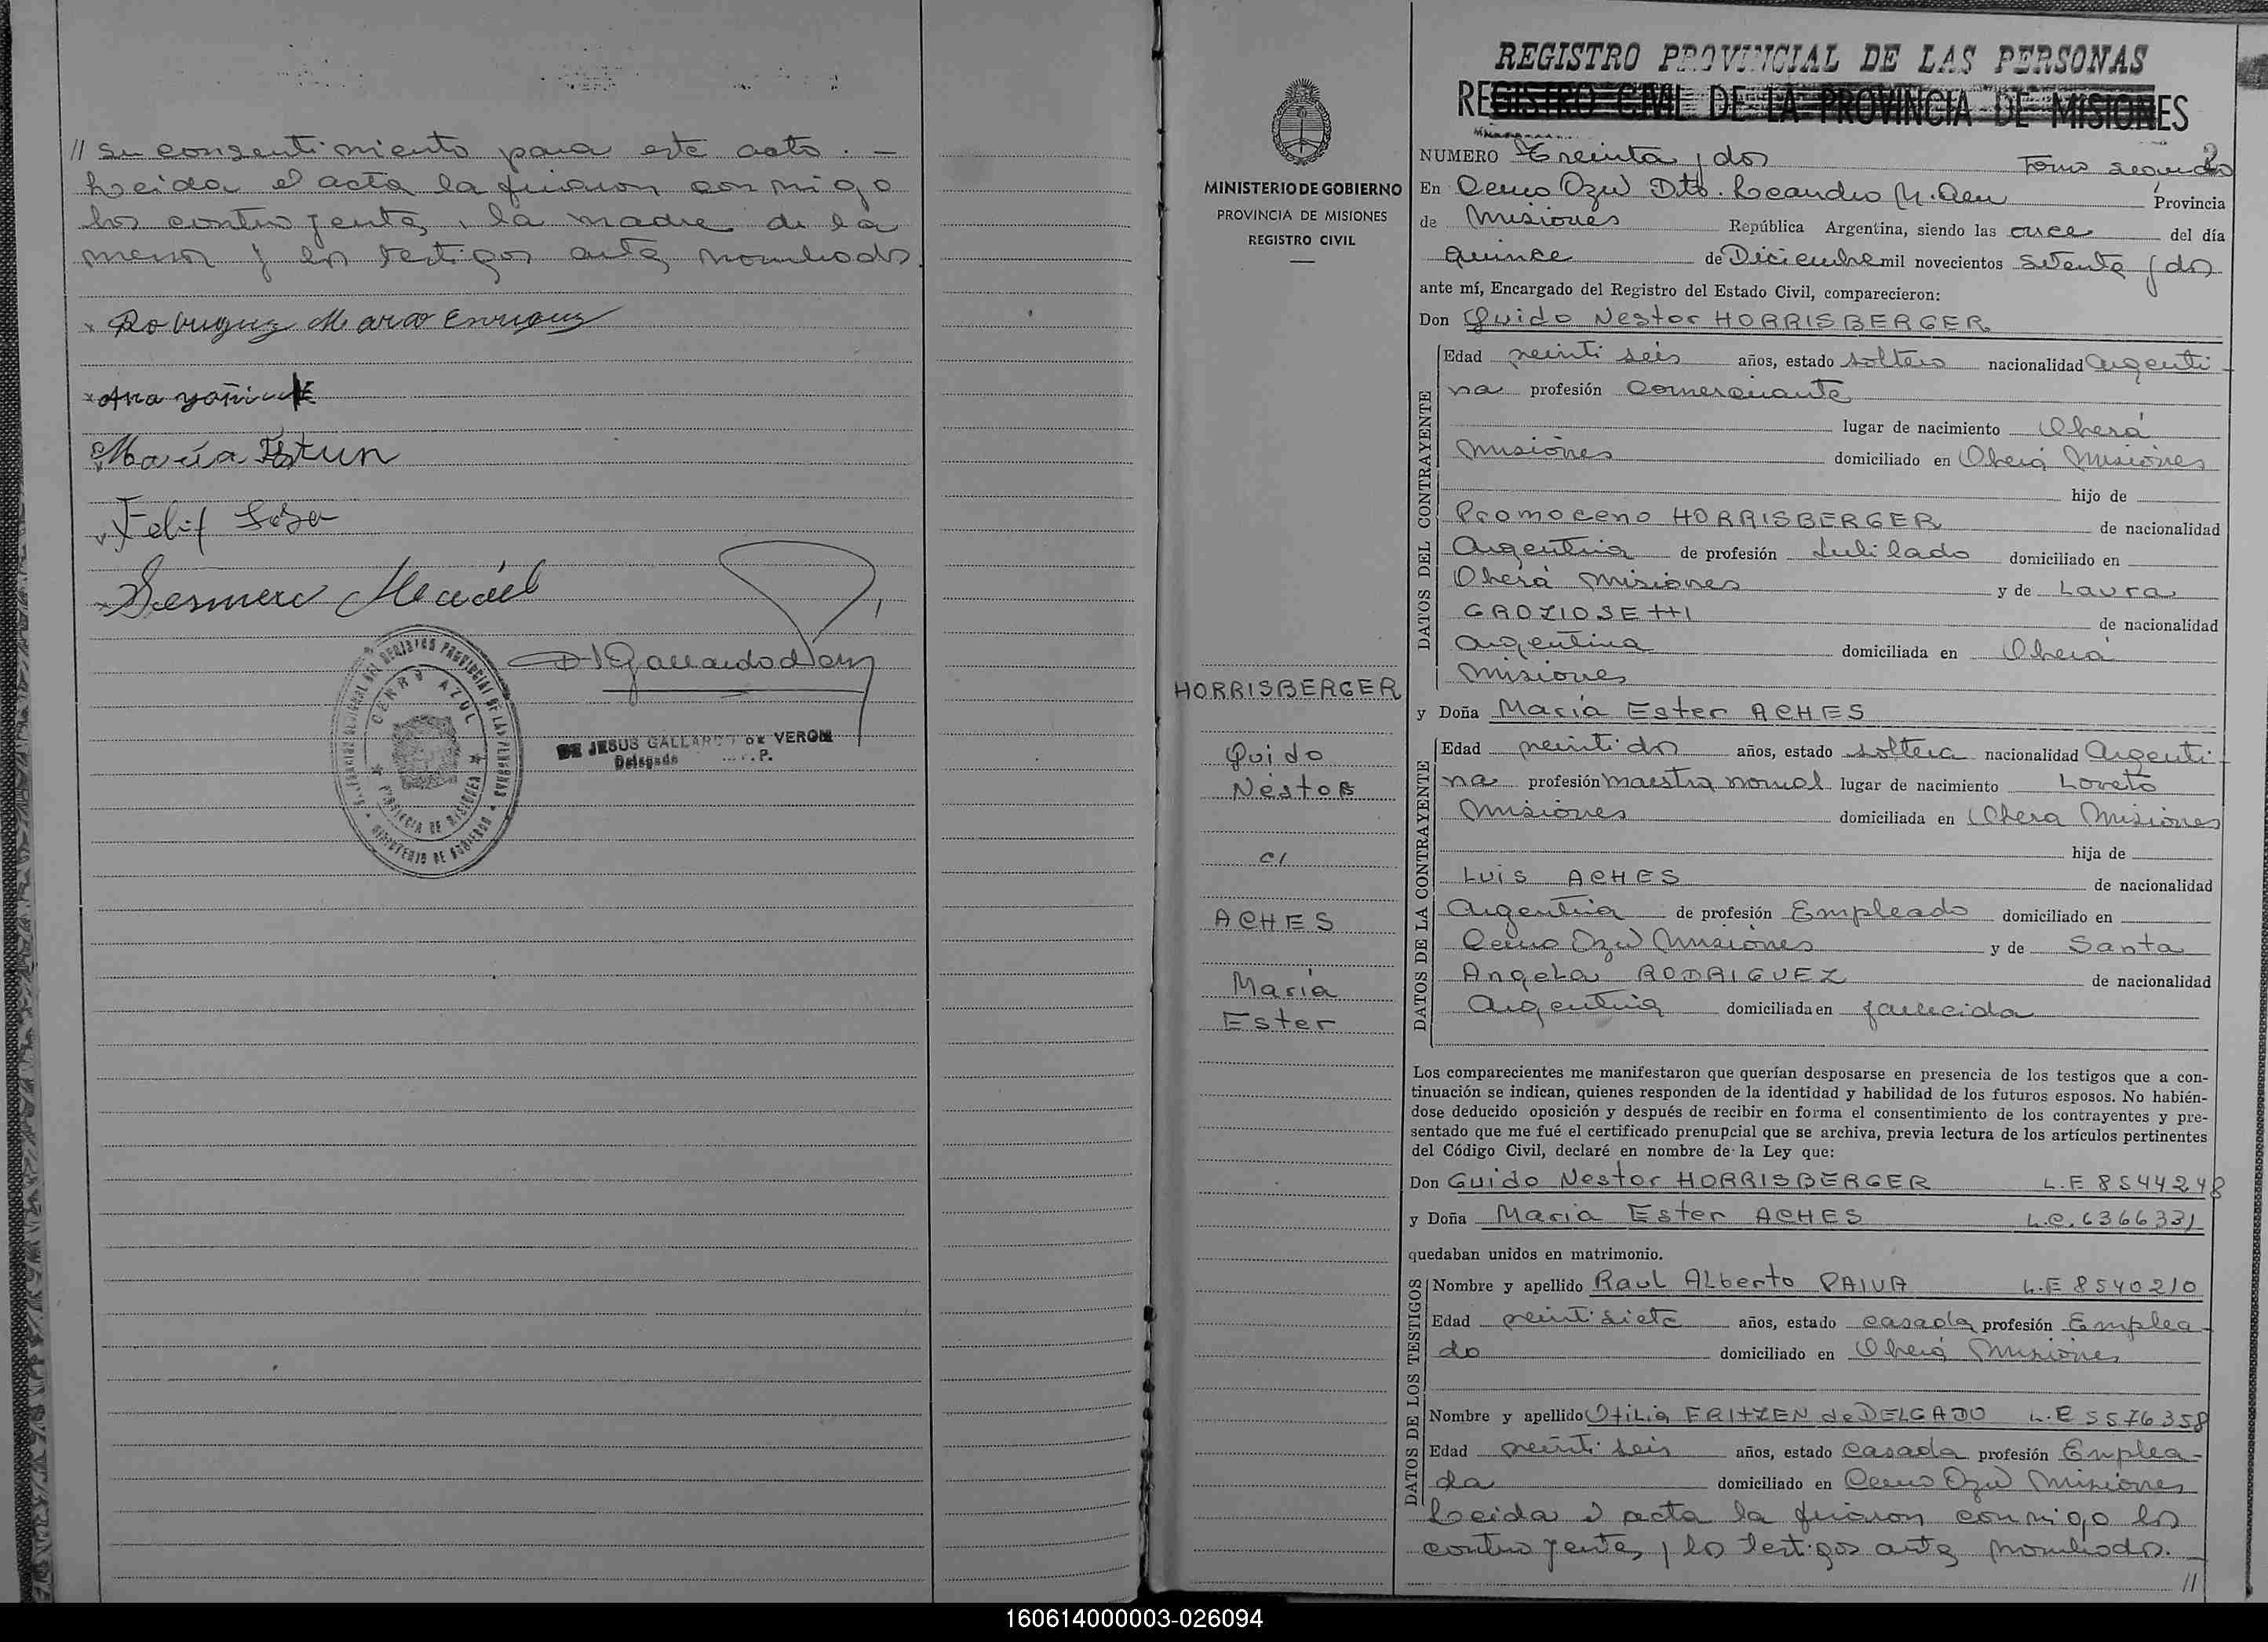 // su consentimiento para este acto. —
Leida el acta la firmaron conmigo
los contrayentes, la madre de la
menor y los testigos antes nombrados
x Rodriguez Marco Enrique
x Ana
María
Felix Sosa
DE JESUS GALLARDO DE VERON
Delegado P.
CERRO AZUL
PROVINCIA DE MISIONES
MINISTERIO DE GOBIERNO
MINISTERIO DE GOBIERNO
PROVINCIA DE MISIONES
REGISTRO CIVIL
HORRISBERGER
Guido
Néstor
c/
ACHES
María
Ester
REGISTRO PROVINCIAL DE LAS PERSONAS
REGISTRO CIVIL DE LA PROVINCIA DE MISIONES
NUMERO Treinta y dos Tomo segundo 2
En Cerro Azul Dto. Leandro N. Alem Provincia
de Misiones República Argentina, siendo las once del día
quince de Diciembre mil novecientos setenta y dos
ante mí, Encargado del Registro del Estado Civil, comparecieron:
Don Guido Nestor HORRISBERGER
DATOS DEL CONTRAYENTE
Edad veinti seis años, estado soltero nacionalidad Argenti-
na profesión Comerciante
lugar de nacimiento Oberá
Misiones domiciliado en Oberá Misiones
hijo de
Promoceno HORRISBERGER de nacionalidad
Argentina de profesión Jubilado domiciliado en
Oberá Misiones y de Laura
GROZIOSETTI de nacionalidad
Argentina domiciliada en Oberá
Misiones
y Doña María Ester ACHES
DATOS DE LA CONTRAYENTE
Edad veinti dos años, estado soltera nacionalidad Argenti-
na profesión maestra normal lugar de nacimiento Loreto
Misiones domiciliada en Oberá Misiones
hija de
Luis ACHES de nacionalidad
Argentina de profesión Empleado domiciliado en
Cerro Azul Misiones y de Santa
Angela RODRIGUEZ de nacionalidad
Argentina domiciliada en fallecida
Los comparecientes me manifestaron que querían desposarse en presencia de los testigos que a con-
tinuación se indican, quienes responden de la identidad y habilidad de los futuros esposos. No habién-
dose deducido oposición y después de recibir en forma el consentimiento de los contrayentes y pre-
sentado que me fué el certificado prenupcial que se archiva, previa lectura de los artículos pertinentes
del Código Civil, declaré en nombre de la Ley que:
Don Guido Nestor HORRISBERGER L.E 8544248
y Doña Maria Ester ACHES L.C. 6366331
quedaban unidos en matrimonio.
DATOS DE LOS TESTIGOS
Nombre y apellido Raul Alberto PAIVA L.E 8540210
Edad veinti siete años, estado casado profesión Emplea-
do domiciliado en Oberá Misiones
Nombre y apellido Otilia FRITZEN de DELGADO L.C 5576358
Edad veinti seis años, estado casada profesión Emplea-
da domiciliado en Cerro Azul Misiones
Leida el acta la firmaron conmigo los
contrayentes y los testigos antes nombrados.
//
160614000003-026094